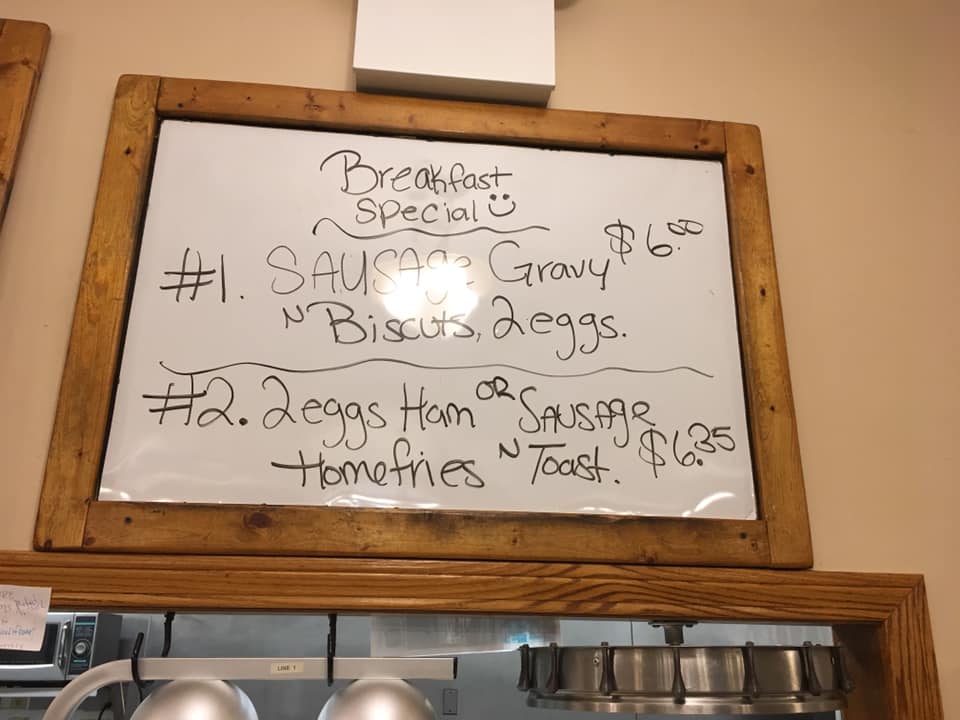 Breakfast
Special
#1. SAUSAGE Gravy $6.00
N Biscuts, 2eggs.
#2. 2eggs Ham OR SAUSAGE
Homefries N Toast. $6.35
LINE 1